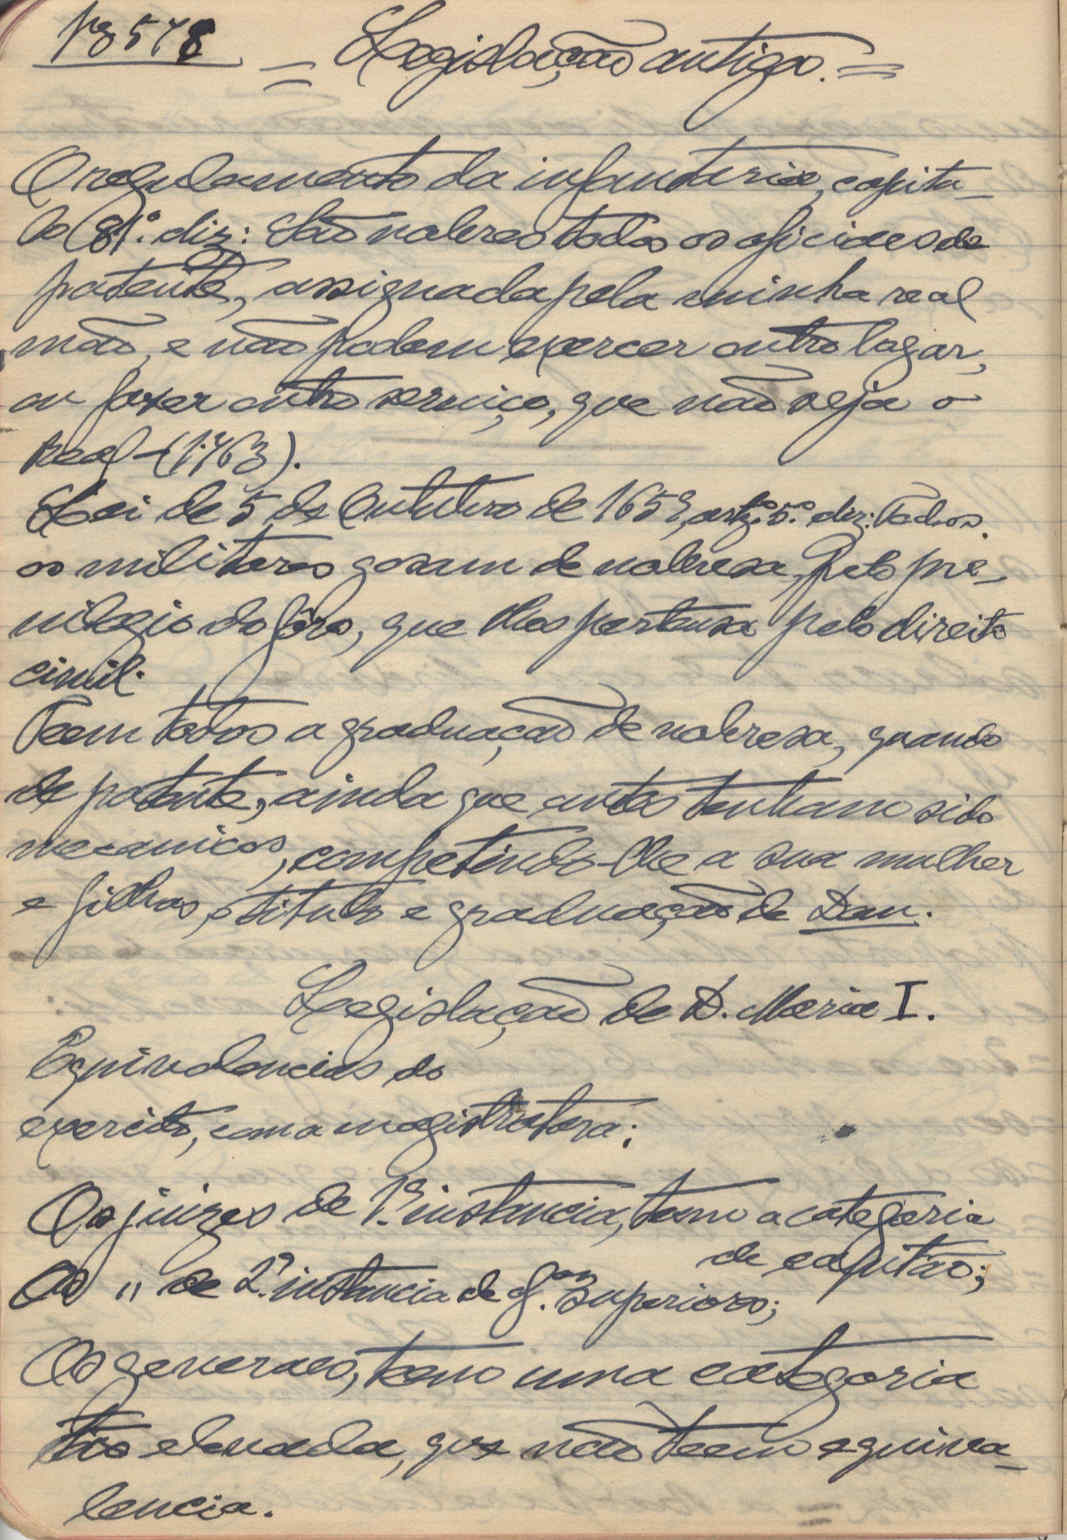 = Legislação antiga. =
O regulamento da infanteria, capitu-
lo (81º. diz: São nobres todos os oficiaes de
patente, assignada pela minha real
mão, e não podem exercer outro lugar,
ou fazer outro serviço, que não seja o
Real - (1763).
Lei de 5 de Outubro de 165 artº. 5º. diz: Todos
os militares gosam de nobresa, pelo pre-
vilegio do fôro, que lhes pertensa pelo direito
civil.
Teem todos a graduação de nobresa, quando
de patente, ainda que antes tenham sido
mecanicos, competindo-lhe a sua mulher
e filhas, o titulo e graduação de Dom.
Legislação de D. Maria I.
Equivalencias do
exercito, com a magistratura:
Os juizes de 1ª. instancia, teem a categoria
de capitão;
Os " de 2ª. instancia de of.es superiores;
Os generaes, teem uma categoria
tão elevada, que não teem equiva-
lencia.